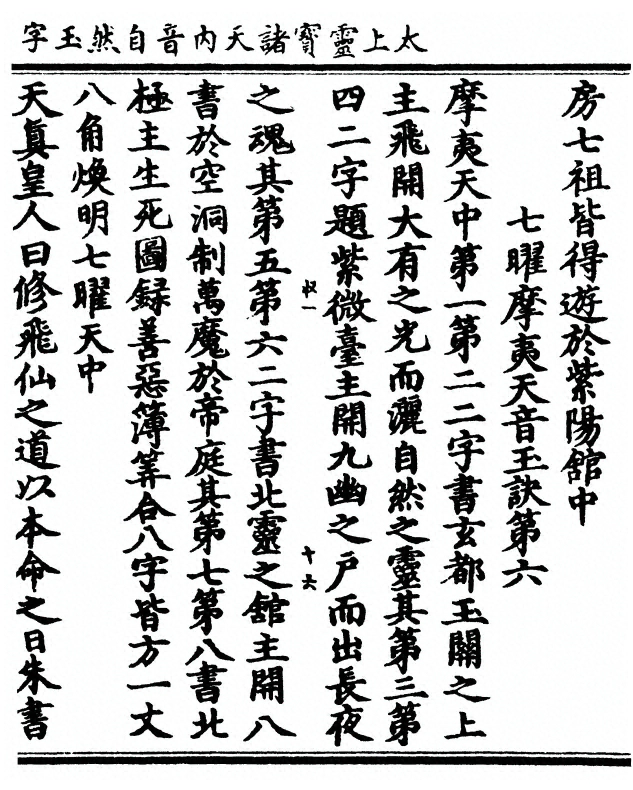 太上靈寳諸天內音自然玉字
房七祖皆得遊於紫陽舘中
七曜摩夷天音玉訣第六
摩夷天中第一第二二字書玄都玉關之上
主飛開大有之光而灑自然之靈其第三第
四二字題紫微臺主開九幽之戶而出長夜
収一
十六
之魂其第五第六二字書北靈之舘主開八
書於空洞制萬魔於帝庭其第七第八書北
極主生死圖録善惡簿筭合八字皆方一丈
八角煥明七曜天中
天眞皇人曰修飛仙之道以本命之日朱書